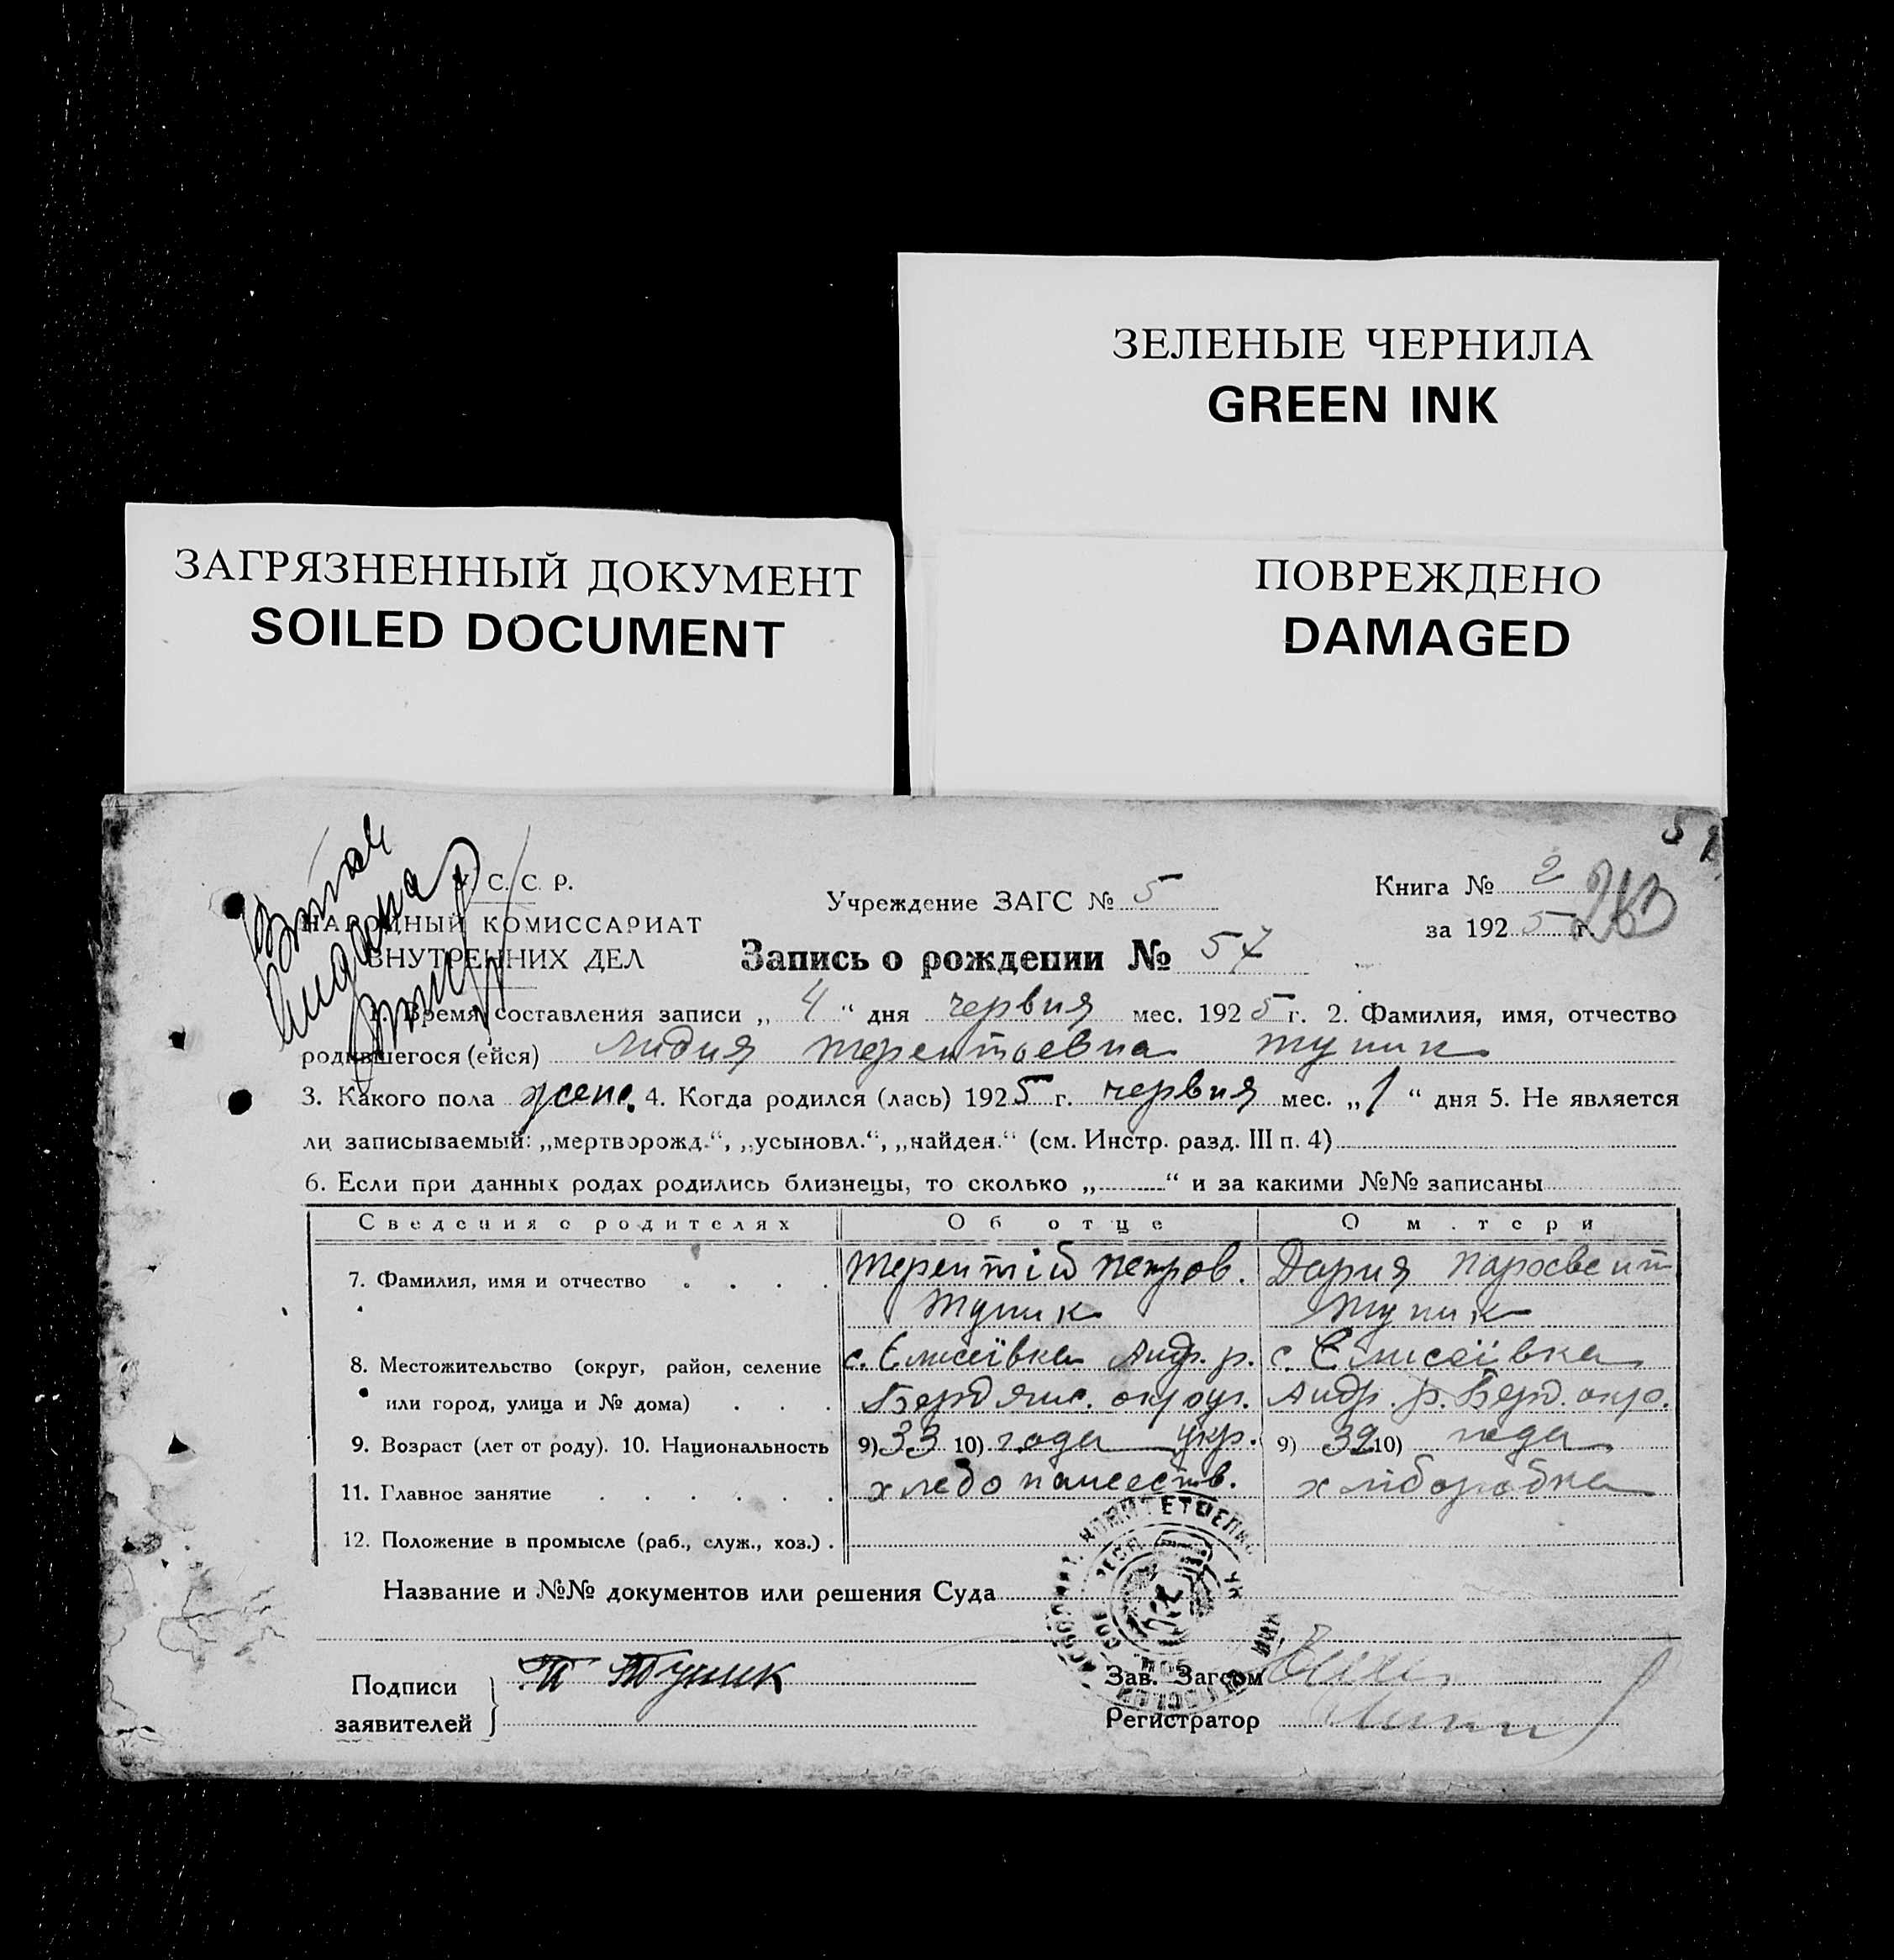 ЗЕЛЕНЫЕ ЧЕРНИЛА
GREEN INK
ЗАГРЯЗНЕННЫЙ ДОКУМЕНТ
SOILED DOCUMENT
ПОВРЕЖДЕНО
DAMAGED
У. С. С. Р.
НАРОДНЫЙ КОМИССАРИАТ
ВНУТРЕННИХ ДЕЛ
Учреждение ЗАГС № 5
Книга № 2
за 1925 г.
Запись о рождении № 57
1. Время составления записи „ 4 “ дня червня мес. 1925 г. 2. Фамилия, имя, отчество
родившегося (ейся) Лидия Терентьевна Тупик
3. Какого пола жено. 4. Когда родился (лась) 1925 г. червня мес. „ 1 “ дня 5. Не является
ли записываемый: „мертворожд.“, „усыновл.“, „найден.“ (см. Инстр. разд. III п. 4)
6. Если при данных родах родились близнецы, то сколько „ “ и за какими №№ записаны
Сведения о родителях Об отце О матери
7. Фамилия, имя и отчество Терентій Петров. Дария
Тупик Тупик
8. Местожительство (округ, район, селение с. Єлисеївка Андр. р. с. Єлисеївка
или город, улица и № дома) Бердянс. округ. Андр. р. Берд. окр.
9. Возраст (лет от роду). 10. Национальность 9) 33 10) года укр. 9) 32 10) года
11. Главное занятие хлебопашеств. хліборобка
12. Положение в промысле (раб., служ., хоз.)
Название и №№ документов или решения Суда
Подписи Т Тупик Зав. Загсом
заявителей Регистратор